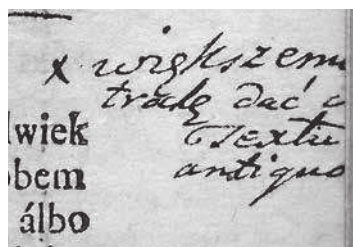 x większemu
dać
Textu
antiquo
lwiek
obem
álbo